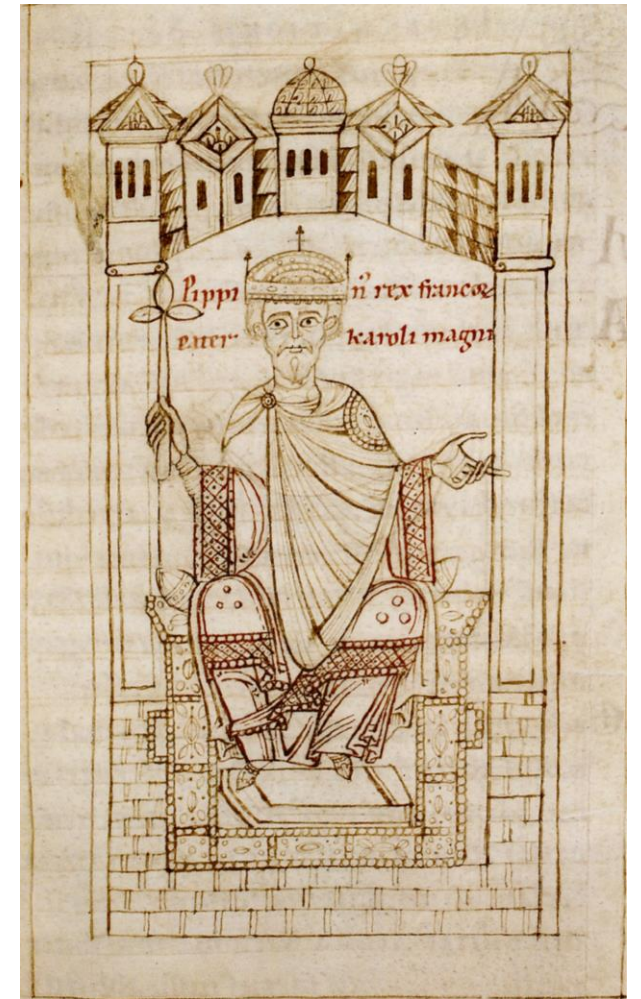 Pippinꝰ rex francoꝝ
pater karoli magni